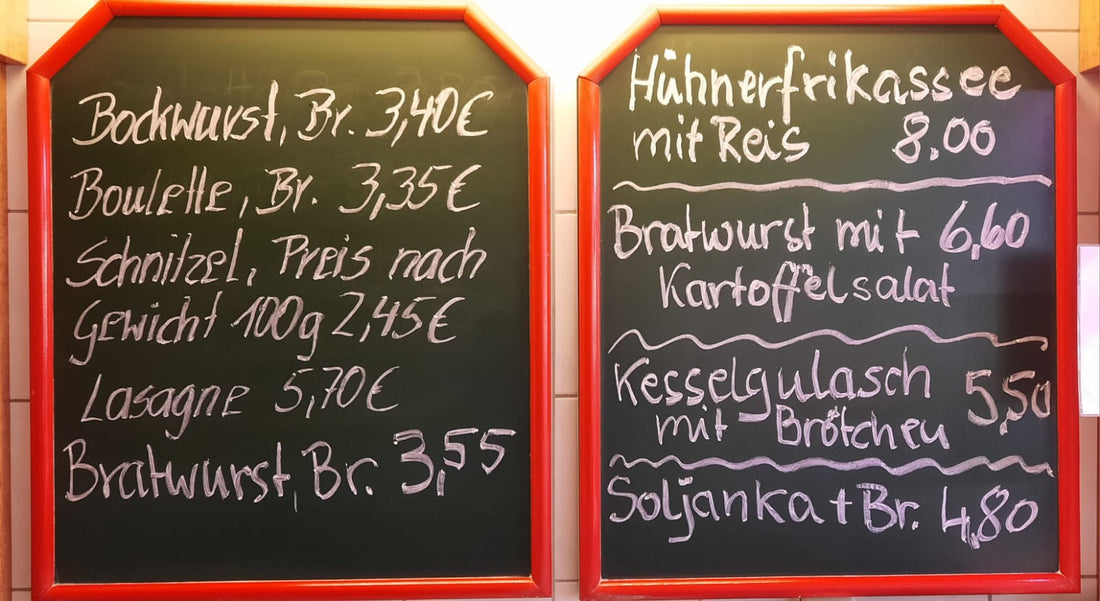 Bockwurst, Br. 3,40€
Boulette, Br. 3,35€
Schnitzel, Preis nach
Gewicht 100g 2,45€
Lasagne 5,70€
Bratwurst, Br. 3,55
Hühnerfrikassee
mit Reis 8.00
Bratwurst mit 6,60
Kartoffelsalat
Kesselgulasch 5,50
mit Brötchen
Soljanka + Br. 4,80